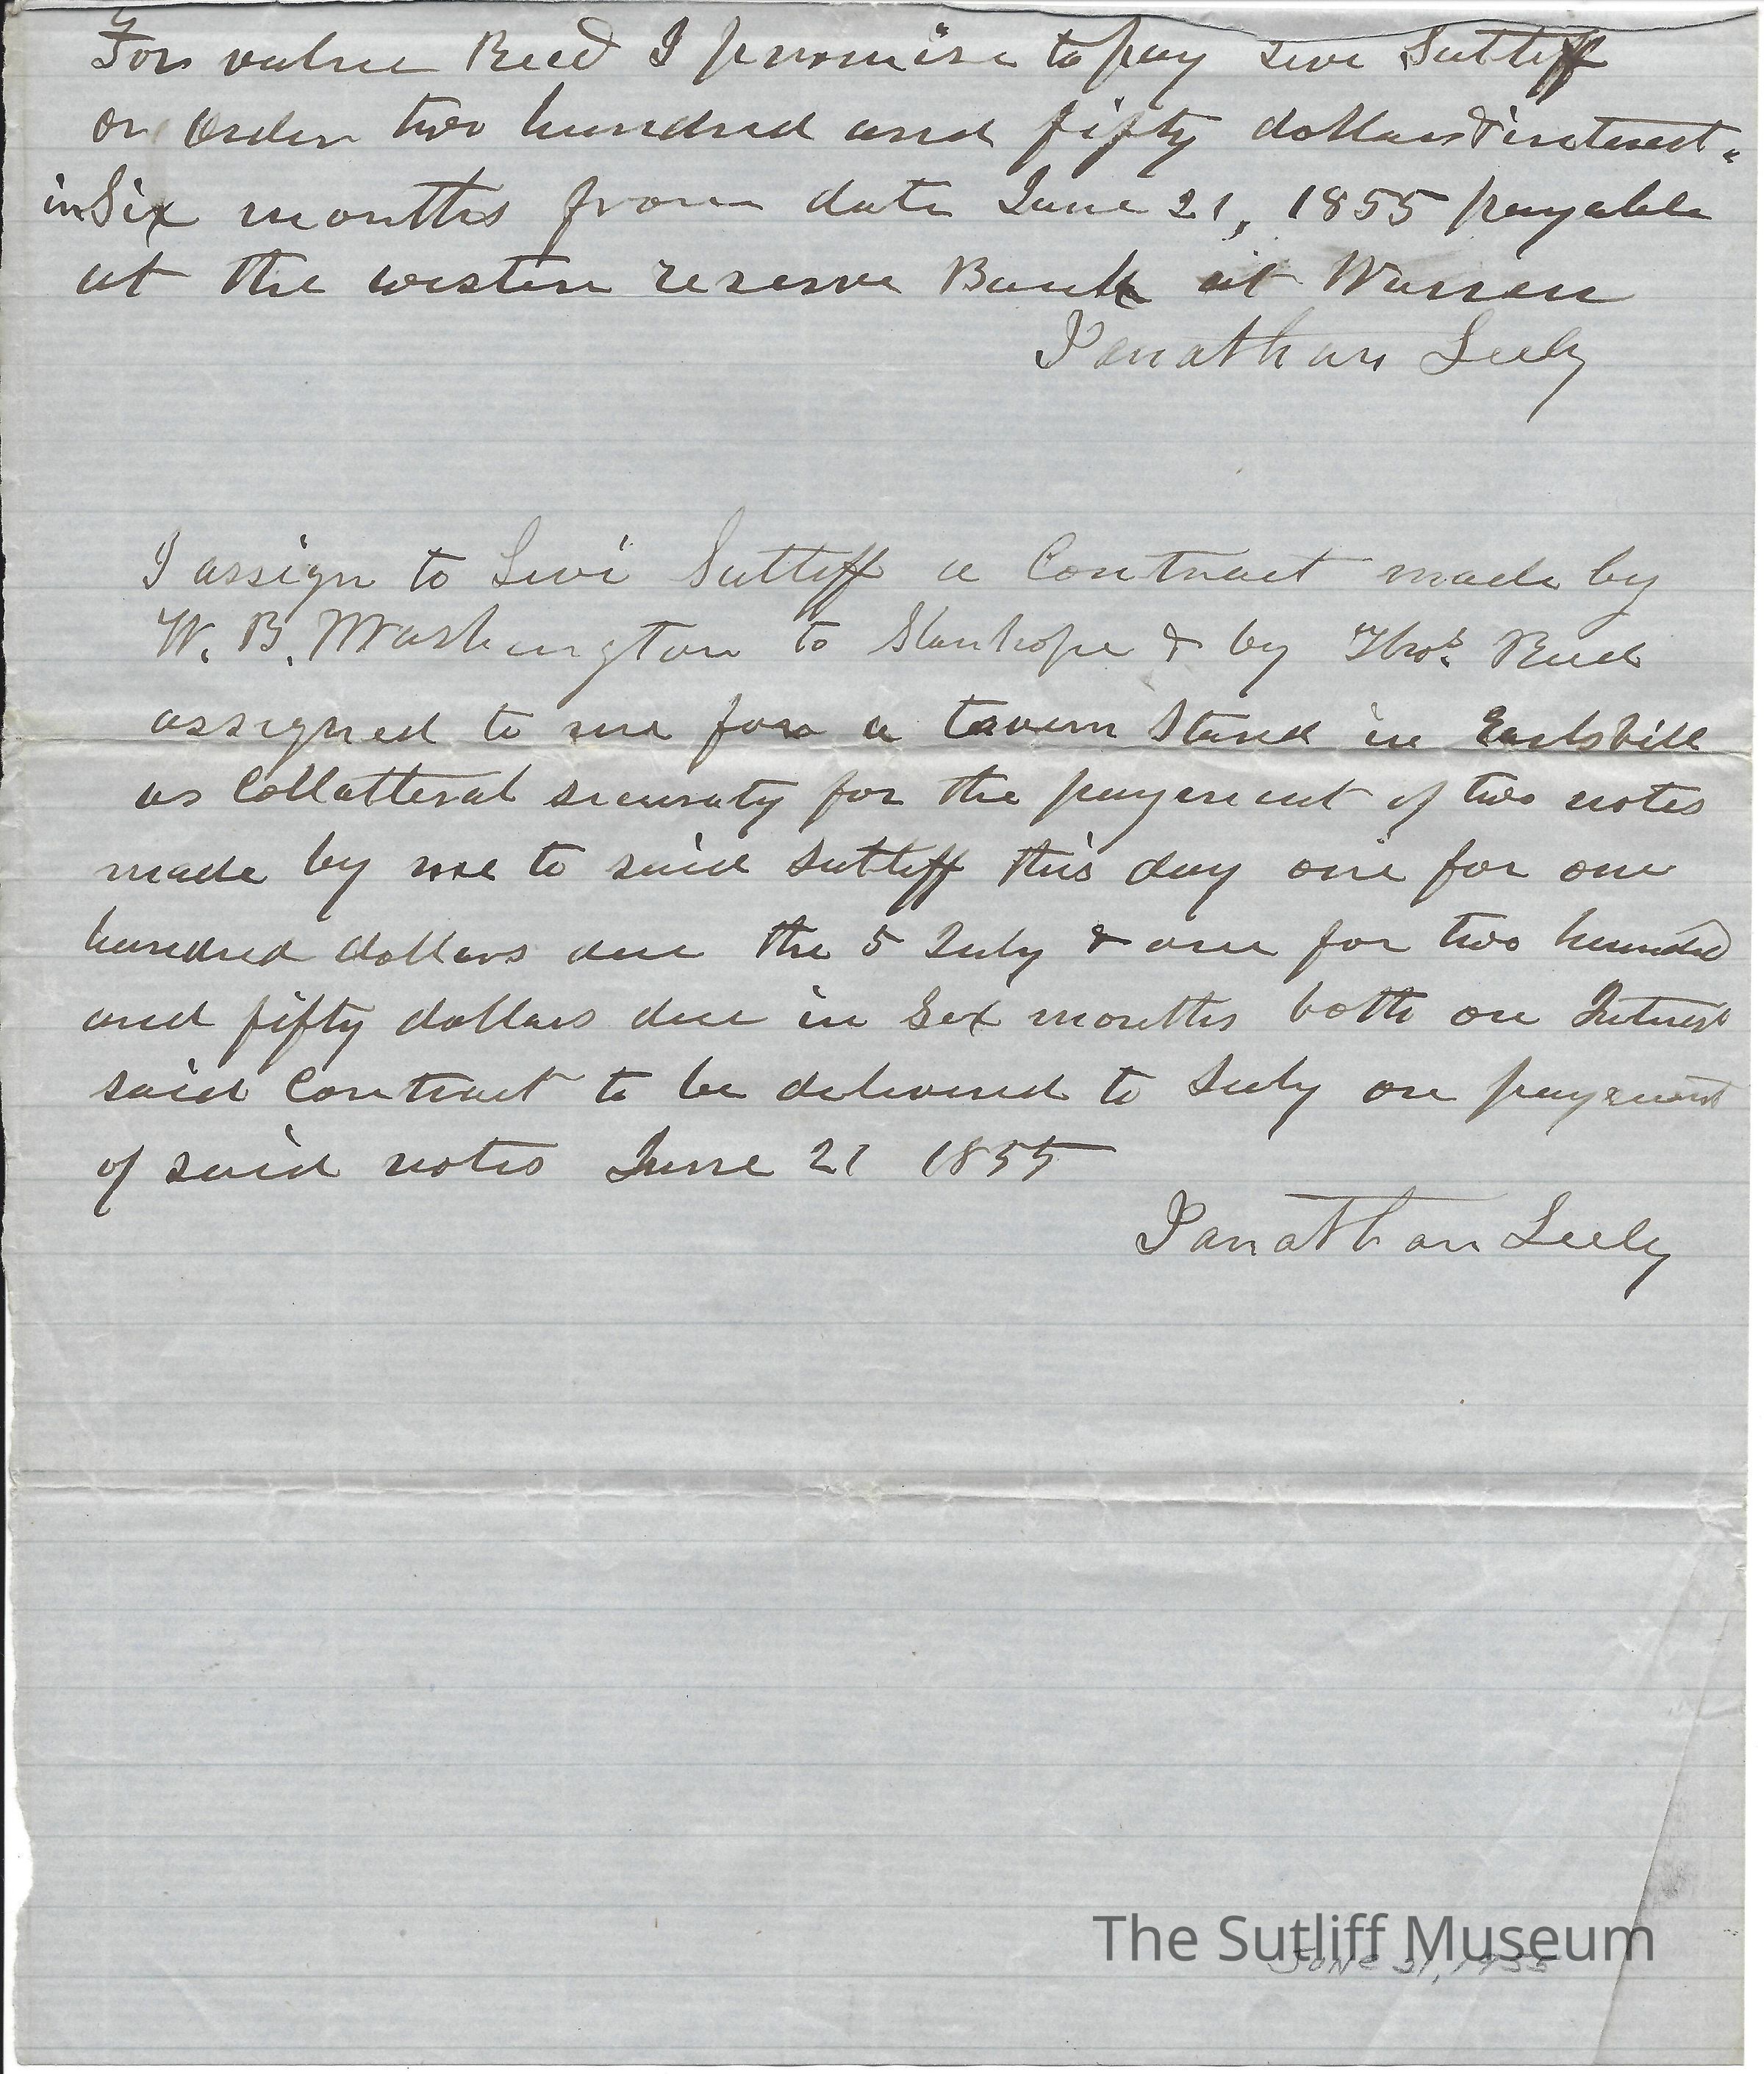 For value Recd I promise to pay Levi Sutliff
or order two hundred and fifty dollars & interest
in Six months from date June 21, 1855 payable
at the western reserve Bank at Warren
Jonathan Seely
I assign to Levi Sutliff a Contract made by
W. B. Washington to Stanhope & by Thos. Reed
assigned to me for a tavern Stand in
as Collatteral security for the payment of two notes
made by me to said Sutliff this day one for one
hundred dollars due the 5 July & one for two hundred
and fifty dollars due in Six months both on Interest
said Contract to be delivered to Seely on payment
of said notes June 21 1855
Jonathan Seely
The Sutliff Museum